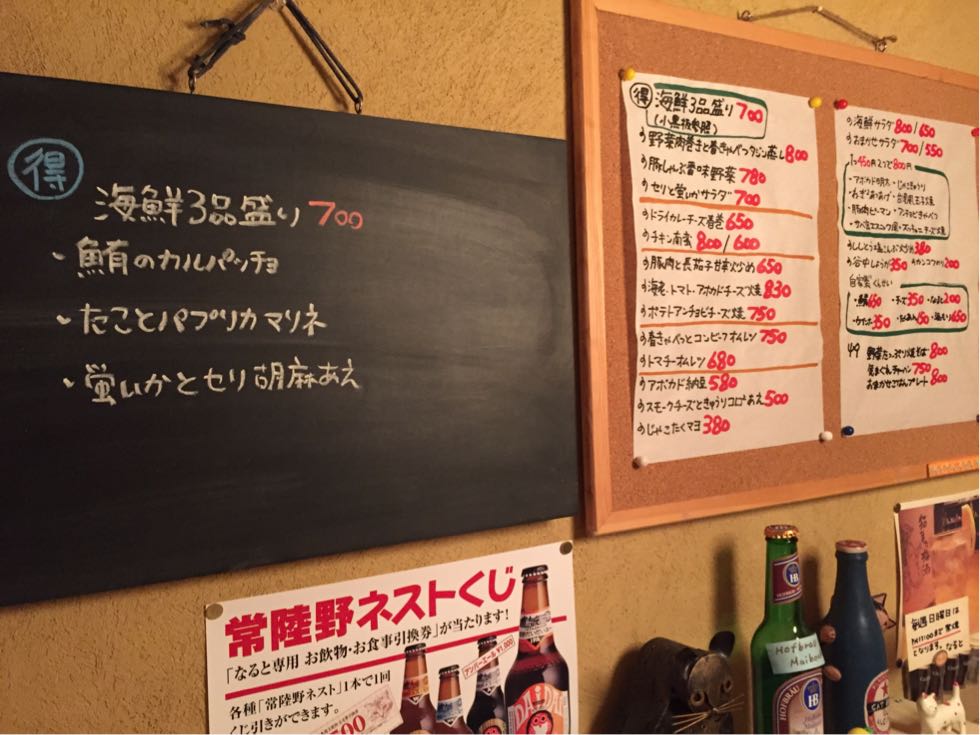 得
海鮮3品盛り 700
・鮪のカルパッチョ
・たことパプリカマリネ
・蛍いかとセリ胡麻あえ
得 海鮮3品盛り 700
(小黒板参照)
野菜肉巻きと春きゃべつタジン蒸し 800
豚しゃぶ香味野菜 780
セリと蛍いかサラダ 700
ドライカレーチーズ春巻 650
チキン南蛮 800/600
豚肉と長茄子甘辛炒め 650
海老・トマト・アボカドチーズ焼 830
ポテトアンチョビチーズ焼 750
春きゃべつとコンビーフオムレツ 750
トマチーオムレツ 680
アボカド納豆 580
スモークチーズときゅうりコロコロあえ 500
じゃこたくマヨ 380
海鮮サラダ 800/650
おまかせサラダ 700/550
1つ450円 2つで800円
・アボカド明太 ・じゃこきゅうり
・ねぎみそあつあげ ・台湾風玉子焼
・豚肉ピーマン ・アンチョビきゃべつ
・サバ缶エスニック風 ・ズッキーニチーズ焼
ししとう塩こんぶ炒め 380
谷中しょうが 350
200
自家製くんせい
650 ・チーズ 350 200
350 ・たくあん 150 650
野菜たっぷり焼そば 800
気まぐれチャーハン 750
おまかせごはんプレート 800
常陸野ネストくじ
「なると専用 お飲物・お食事引換券」が当たります!
各種「常陸野ネスト」1本で1回
くじ引きができます。
500
アンバーエール ¥1,000
DAIDAI
HB
HOFBRÄU
Hofbräu
Maibock
HOFBRÄU
HB
梅酒
毎週日曜日は
PM11:00まで営業
となります。なると